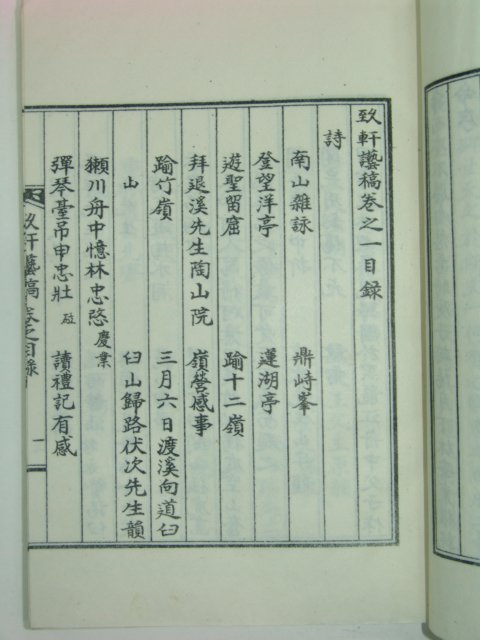 致軒虀稿卷之一目錄
詩
南山雜詠 鼎峙峯
登望洋亭 蓮湖亭
遊聖留窟 踰十二嶺
拜退溪先生陶山院 嶺營感事
踰竹嶺 三月六日渡溪向道臼
山 臼山歸路伏次先生韻
獺川舟中憶林忠愍慶業
彈琴臺吊申忠壯砬 讀禮記有感
一